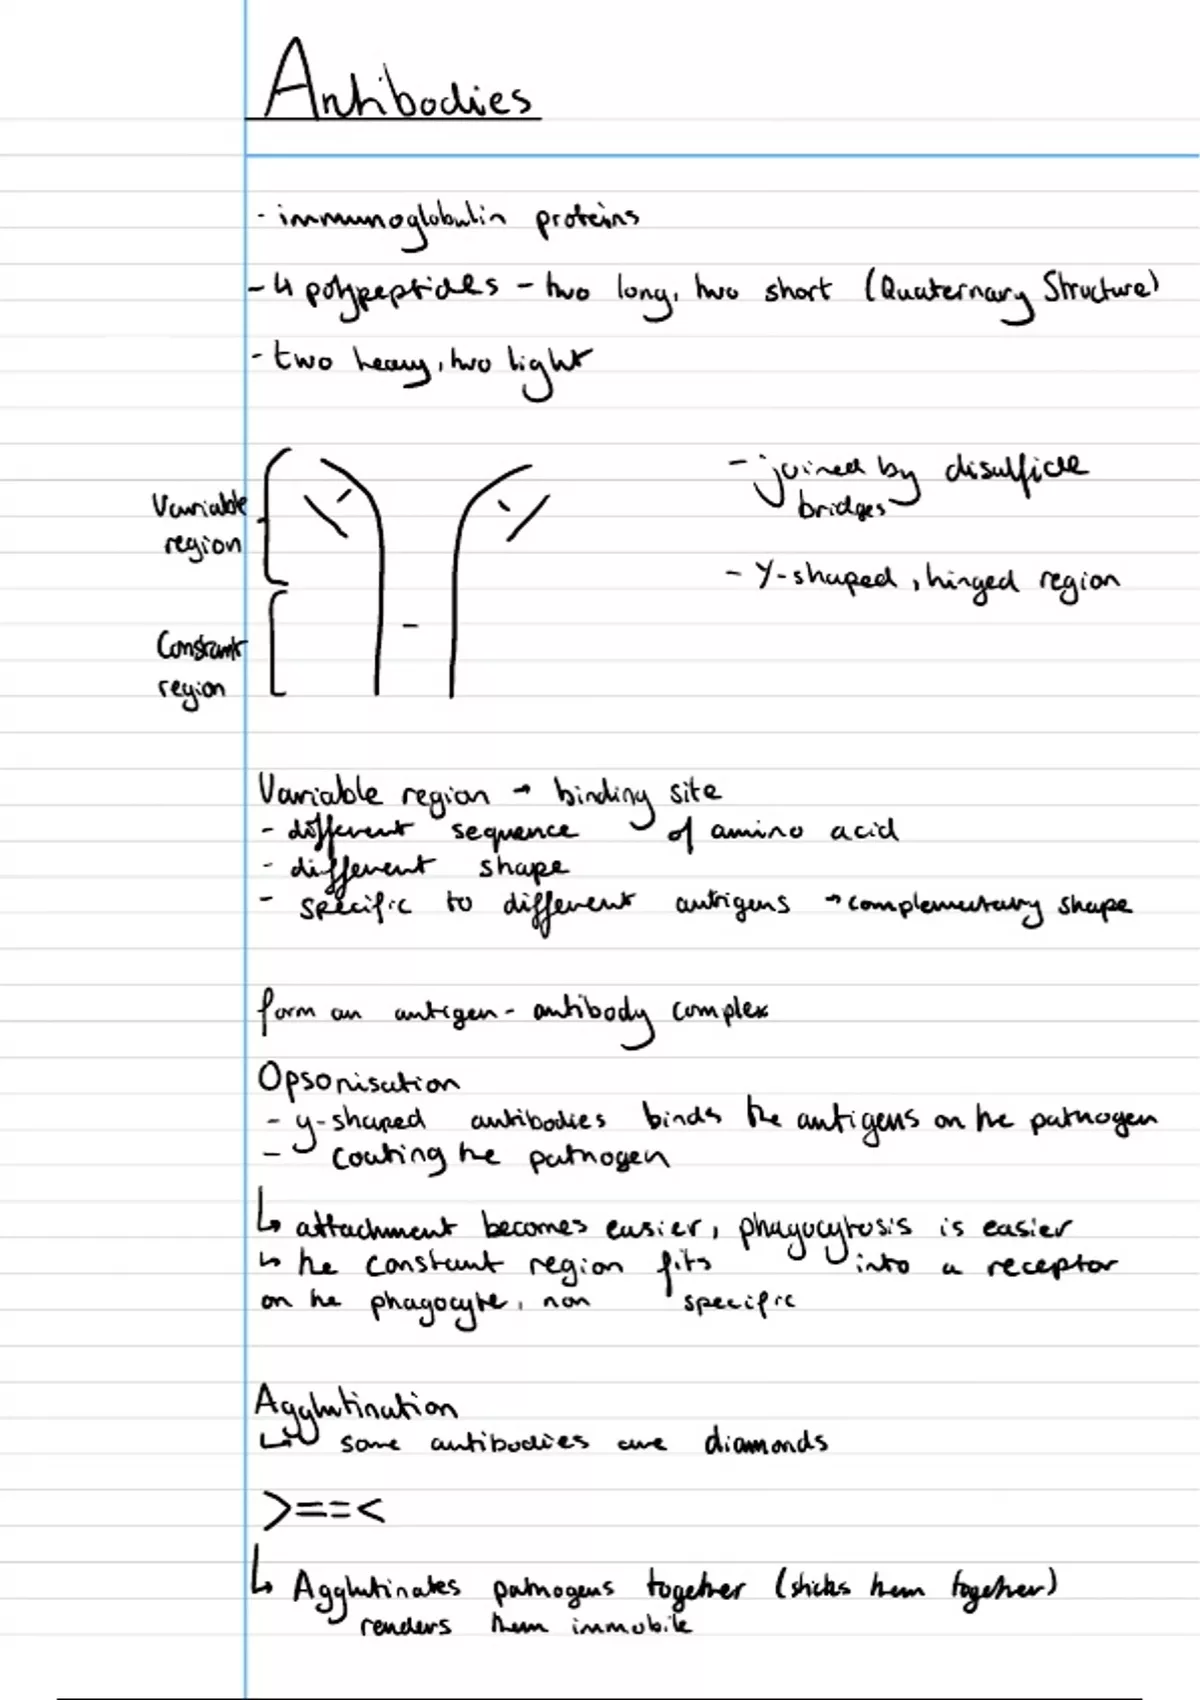 Antibodies
- immunoglobulin proteins
- 4 polypeptides - two long, two short (Quaternary Structure)
- two heavy, two light
Variable
region
Constant
region
- joined by disulfide
bridges
- Y-shaped, hinged region
Variable region → binding site
- different sequence of amino acid
- different shape
- specific to different antigens → complementary shape
form an antigen - antibody complex
Opsonisation
- y-shaped antibodies binds the antigens on the pathogen
- coating the pathogen
↳ attachment becomes easier, phagocytosis is easier
↳ the constant region fits into a receptor
on the phagocyte, non specific
Agglutination
↳ some antibodies are diamonds
>==<
↳ Agglutinates pathogens together (sticks them together)
renders them immobile